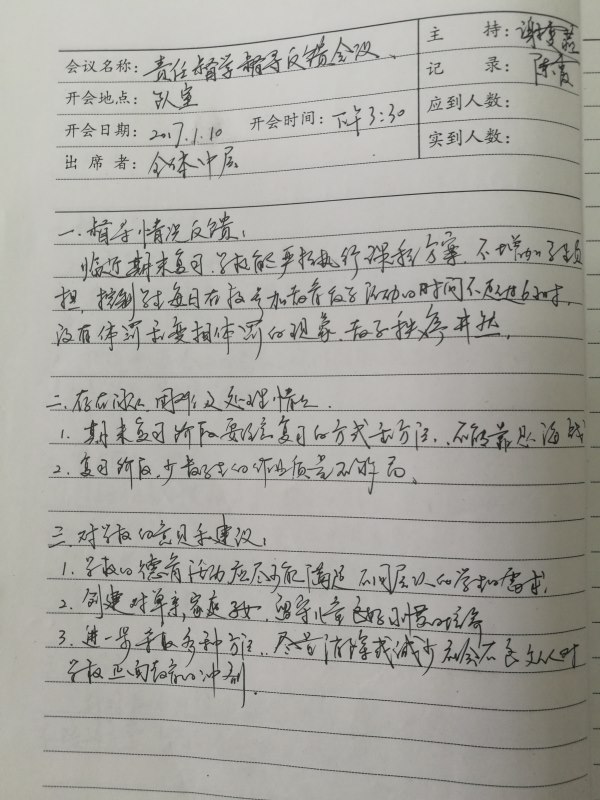 主 持：谢
会议名称：责任督学督导反馈会议、
记 录：陈
开会地点：队室
应到人数：
开会日期：2017.1.10 开会时间：下午3:30
实到人数：
出 席 者：全体中层
一.督导情况反馈：
临近期末复习.学校能严格执行课程方案.不增加学生负
担，控制学生每日在校参加教育教学活动的时间不超过6小时.
没有体罚和变相体罚的现象.教学秩序井然.
二.存在的问题及处理情况.
1.期末复习阶段要注意复习的方式和方法..不能靠题海战
2.复习阶段.少数学生的作业质量不够高、
三.对学校的意见和建议：
1.学校的德育活动应尽可能满足不同层次的学生的需求.
2.创建对单亲家庭子女.留守儿童良好习惯的培养
3.进一步采取多种方法..尽量消除或减少社会不良文化对
学校正面教育的冲刷.